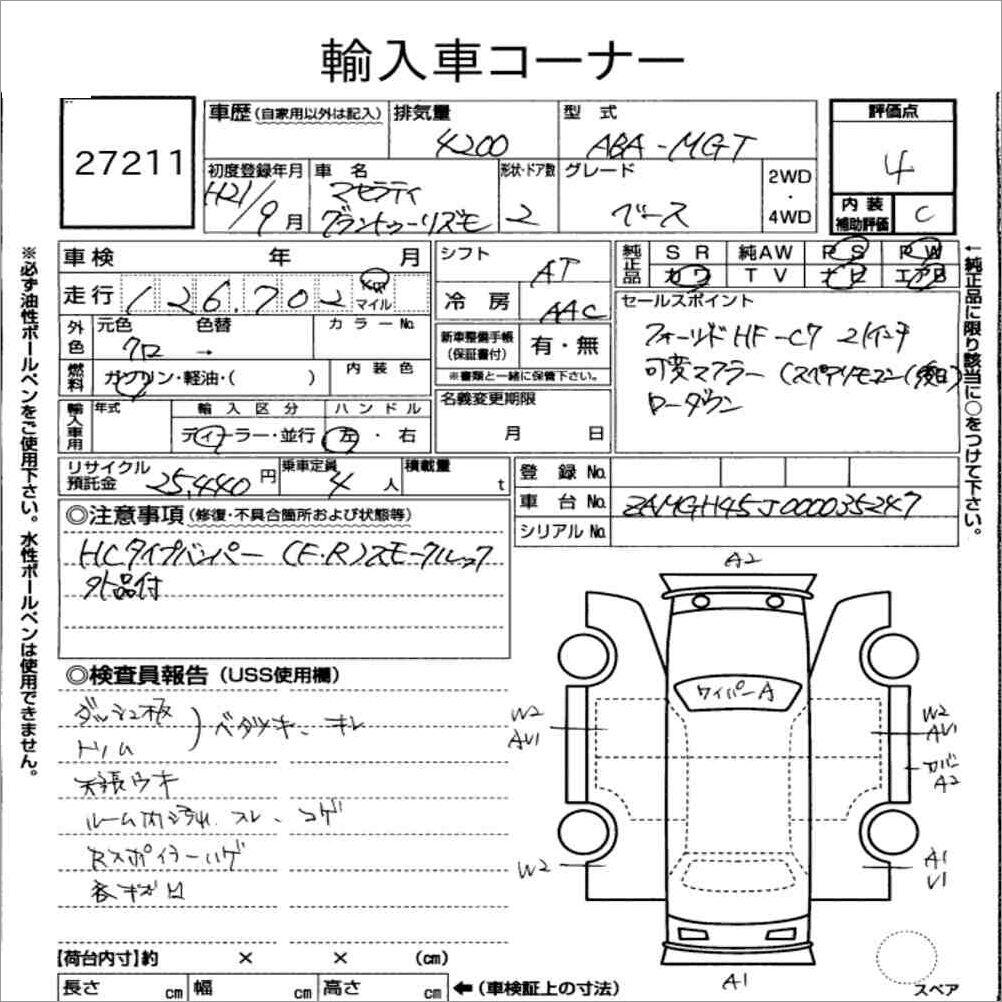 輸入車コーナー
27211
車歴(自家用以外は記入)
排気量
4200
型式
ABA-MGT
評価点
4
初度登録年月
H21/9月
車名
マセラティ
グラントゥーリズモ
形状・ドア数
2
グレード
ベース
2WD
・
4WD
内装
補助評価
C
※必ず油性ボールペンをご使用下さい。水性ボールペンは使用できません。
車検 年 月
走行 126,702 km マイル
シフト
AT
冷房
AAC
純正品
SR 純AW PS PW
カワ TV ナビ エアB
←純正品に限り該当に○をつけて下さい。
外色
元色 色替
クロ →
カラーNo.
燃料
ガソリン・軽油・( )
内装色
新車整備手帳
(保証書付)
有・無
※書類と一緒に保管下さい。
セールスポイント
フォールドHF-C7 21インチ
可変マフラー (スペアリモコン(後日)
ローダウン
輸入車用
年式
輸入区分
ディーラー・並行
ハンドル
左・右
名義変更期限
月 日
リサイクル
預託金
25,440円
乗車定員
4人
積載量
t
登録No.
車台No.
ZAMGH45J000035247
シリアルNo.
◎注意事項(修復・不具合箇所および状態等)
HCタイプバンパー(F・R)スモークルック
外品付
◎検査員報告(USS使用欄)
ダッシュ板
トリム
)ベタツキ、キレ
天張ウキ
ルーム内ヨゴれ、スレ、コゲ
Rスポイラーハゲ
各キズ凹
A2
ワイパーA
W2
AV1
W2
AV1
カバー
A2
W2
A1
V1
A1
スペア
【荷台内寸】約 × × (cm)
長さ cm 幅 cm 高さ cm
←(車検証上の寸法)